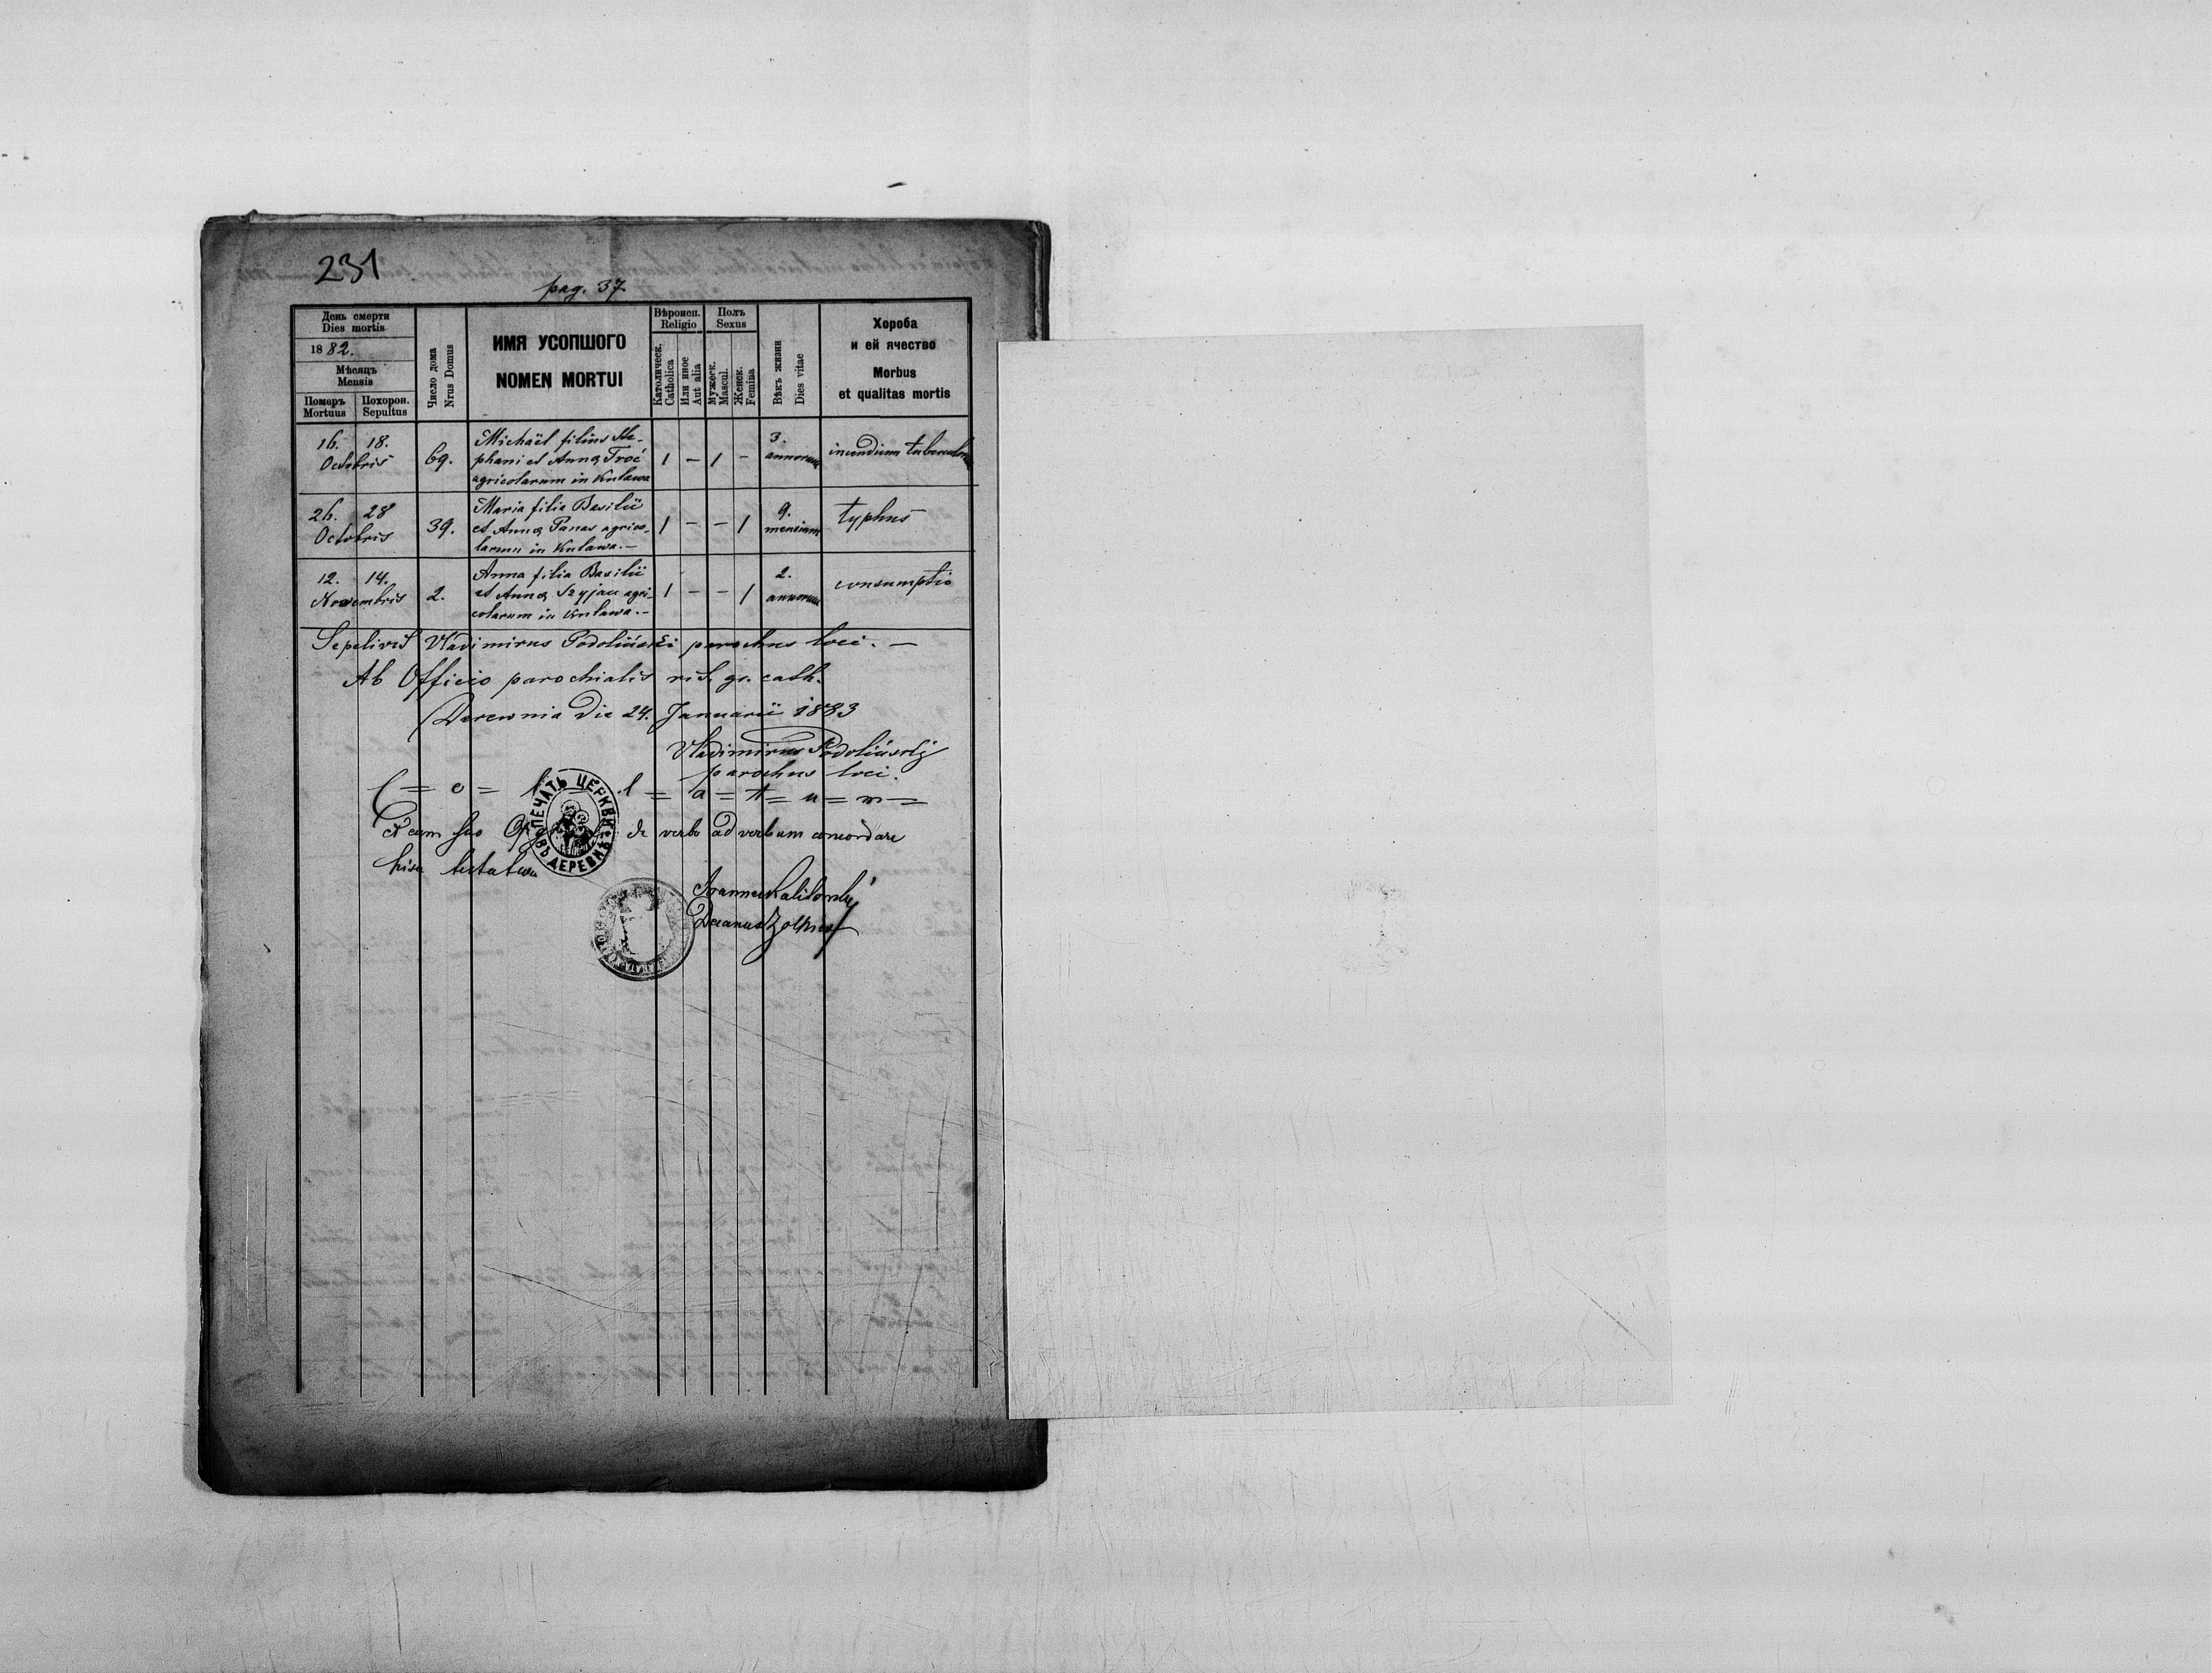 231
pag. 37
День смерти
Dies mortis
1882.
Мѣсяцъ
Mensis
Померъ
Mortuus
Похорон.
Sepultus
Число дома
Nrus Domus
ИМЯ УСОПШОГО
NOMEN MORTUI
Вѣроисп.
Religio
Католическ.
Catholica
Или иное
Aut alia
Полъ
Sexus
Мужеск.
Mascul.
Женск.
Femina
Вѣкъ жизни
Dies vitae
Хороба
и ей ячество
Morbus
et qualitas mortis
16. 18.
Octobris
69.
Michaël filius Ste-
phani et Annae Troć
agricolarum in Kulawa
1 – 1 –
3.
annorum
26. 28
Octobris
39.
Maria filia Basilii
et Annae Panas agrico-
larum in Kulawa.–
1 – – 1
9.
mensium
typhus
12. 14.
Novembris
2.
Anna filia Basilii
et Annae Szyjan agri-
colarum in Kulawa.–
1 – – 1
2.
annorum
consumptio
Sepelivit Vladimirus Podoliński parochus loci. –
Ab Officio parochialis rit. gr. cath.
Derewnia die 24. Januarii 1883
Vladimirus Podolińskij
parochus loci.
ПЕЧАТЬ ЦЕРКВИ ВЪ ДЕРЕВНѢ
l = a = t = u = m =
cum suo de verbo ad verbum concordare
hisce testatur
Joannes
Decanus